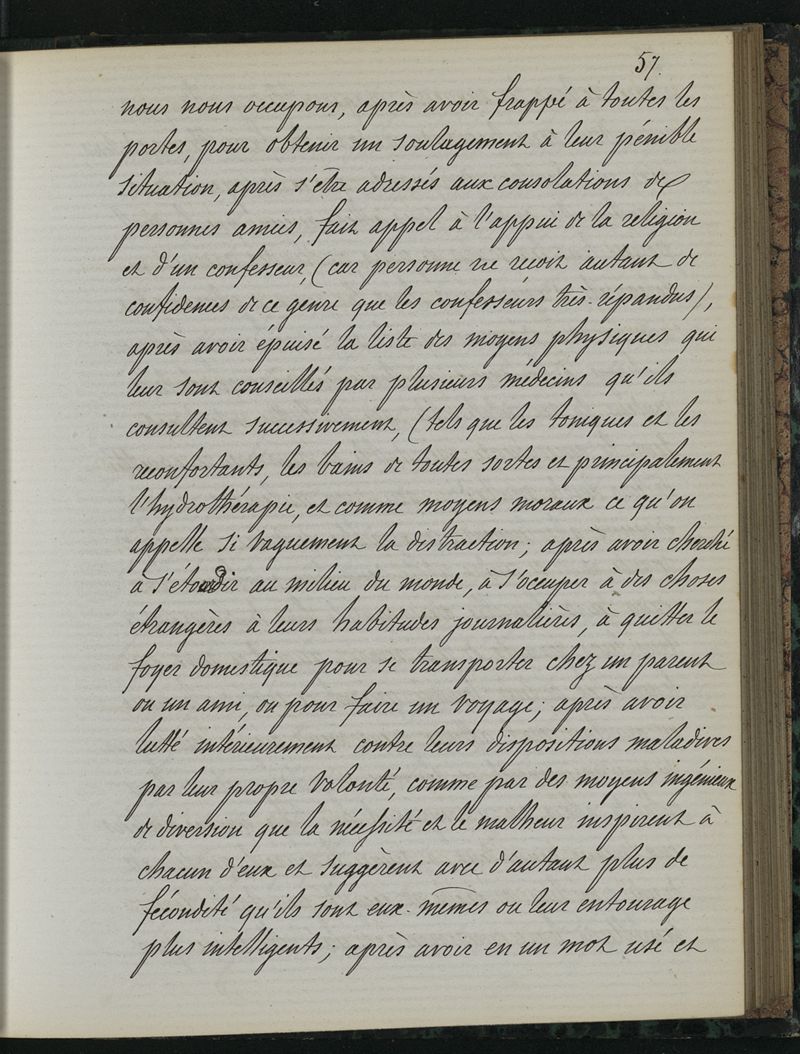 57.
nous nous occupons, après avoir frappé à toutes les
portes, pour obtenir un soulagement à leur pénible
situation, après s'être adressés aux consolations de
personnes amies, fait appel à l'appui de la religion
et d'un confesseur, (car personne ne reçoit autant de
confidences de ce genre que les confesseurs très-répandus),
après avoir épuisé la liste des moyens physiques qui
leur sont conseillés par plusieurs médecins qu'ils
consultent successivement, (tels que les toniques et les
reconfortants, les bains de toutes sortes et principalement
l'hydrothérapie, et comme moyens moraux ce qu'on
appelle si vaguement la distraction; après avoir cherché
à s'étourdir au milieu du monde, à s'occuper à des choses
étrangères à leurs habitudes journalières, à quitter le
foyer domestique pour se transporter chez un parent
ou un ami, ou pour faire un voyage; après avoir
lutté intérieurement contre leurs dispositions maladives
par leur propre volonté, comme par des moyens ingénieux
de diversion que la nécessité et le malheur inspirent à
chacun d'eux et suggèrent avec d'autant plus de
fécondité qu'ils sont eux-mêmes ou leur entourage
plus intelligents; après avoir en un mot usé et